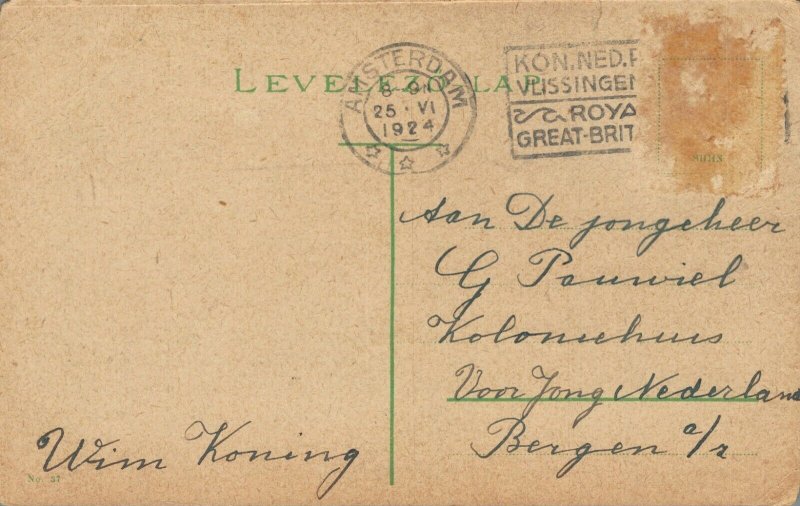 LEVELEZŐ-LAP
AMSTERDAM
25 · VI
1924
KON. NED.
VLISSINGEN
ROYA
GREAT-BRIT
Aan De jongeheer
G Pauwiel
Koloniehuis
Voor Jong Nederland
Bergen a/z
Wim Koning
No. 57